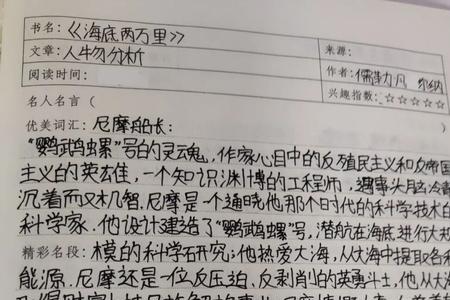 书名：《海底两万里》
来源：
文章：人物分析
作者：儒勒·凡尔纳
阅读时间：
兴趣指数：☆☆☆☆☆
名人名言（ ）
优美词汇：尼摩船长：
“鹦鹉螺”号的灵魂，作家心目中的反殖民主义和反帝国
主义的英雄，一个知识渊博的工程师，遇事头脑冷静
沉着而又机智.尼摩是一个通晓他那个时代的科学技术的
科学家.他设计建造了“鹦鹉螺”号，潜航在海底进行大规
精彩名段：模的科学研究；他热爱大海，从大海中提取各种
能源.尼摩还是一位反压迫、反剥削的英勇斗士，他从大海